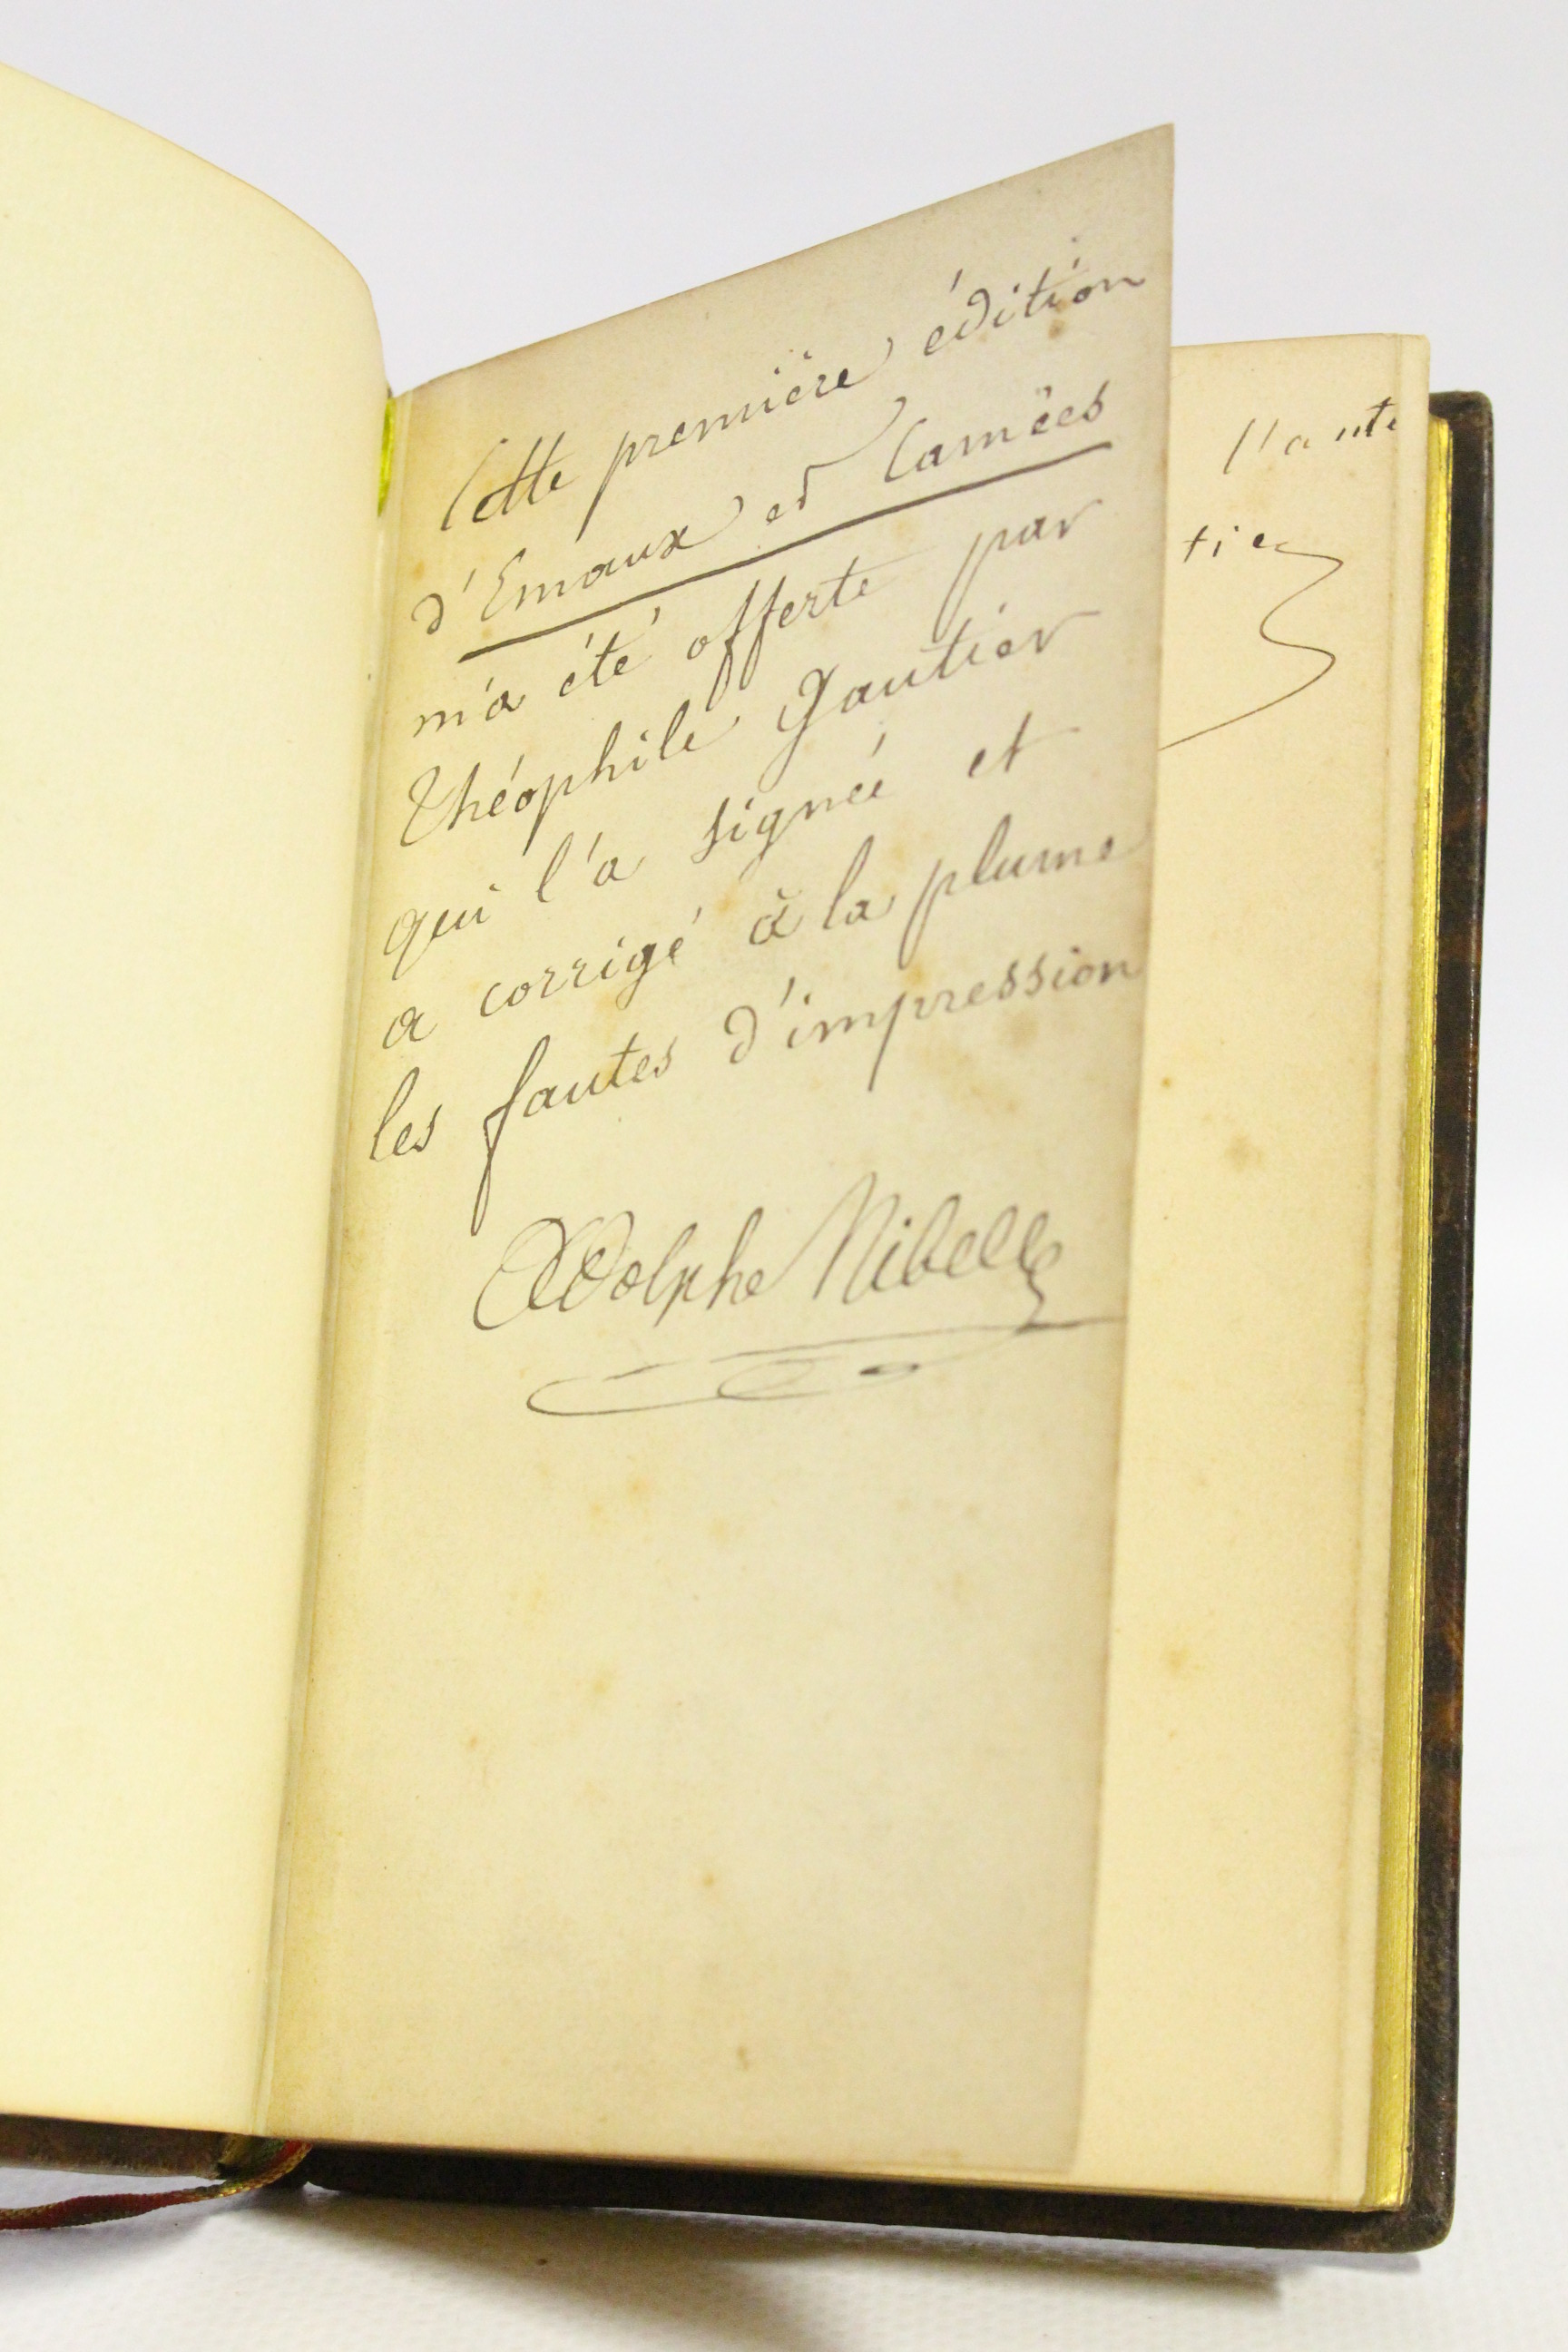 Cette première édition
d'Emaux et Camées
m'a été offerte par
Théophile Gautier
qui l'a signée et
a corrigé à la plume
les fautes d'impression
Adolphe Nibelle
tier